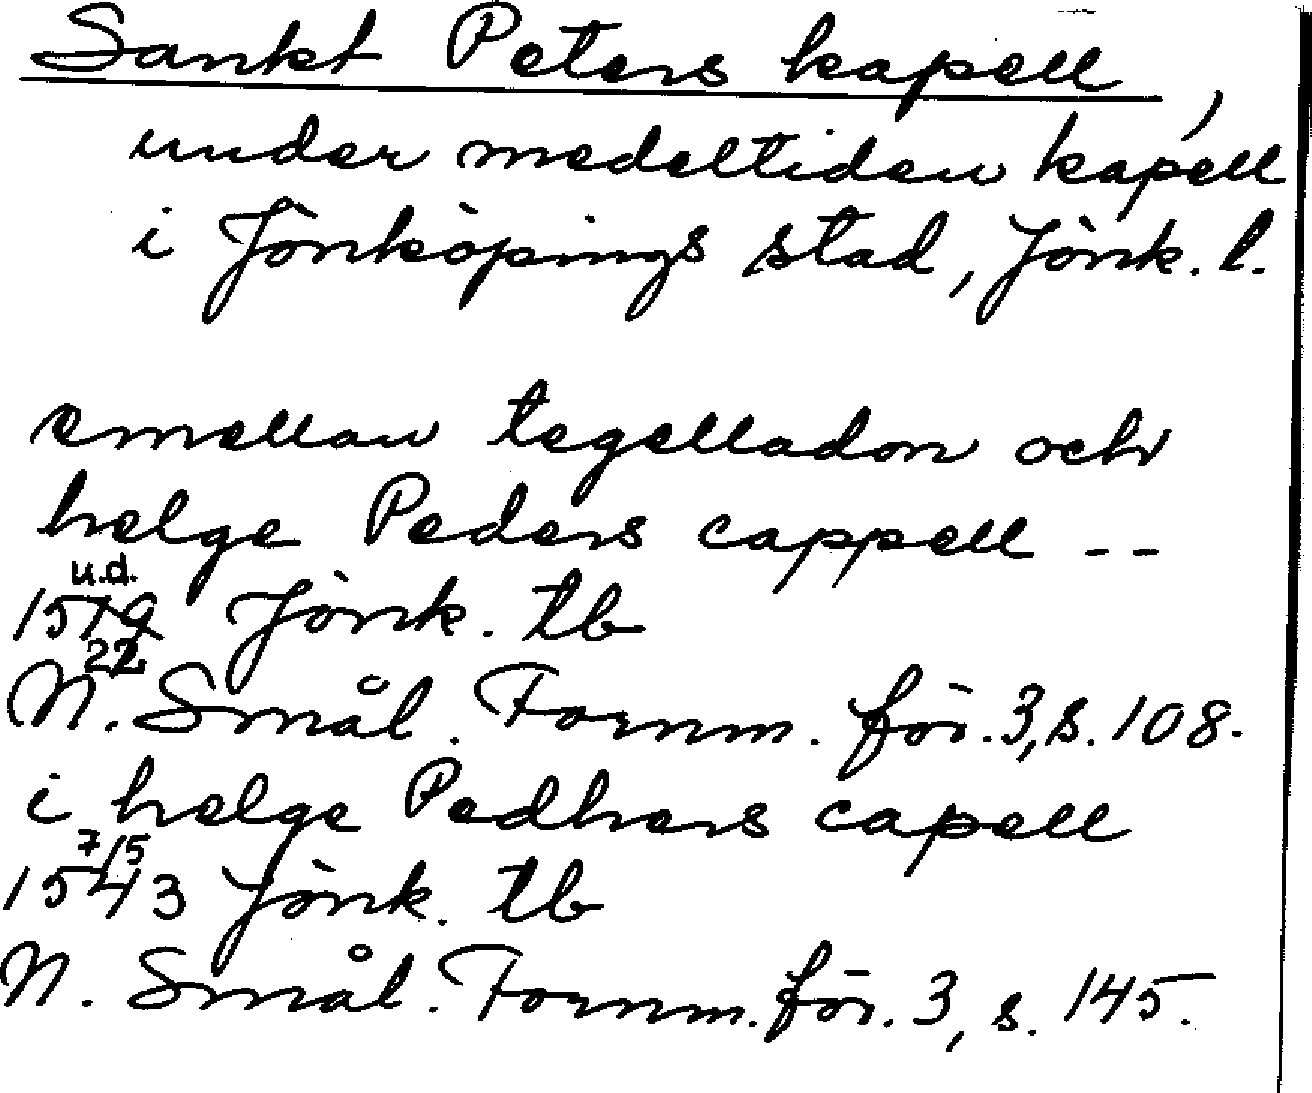 Sankt Peters kapell,
under medeltiden kapell
i Jönköpings stad, Jönk. l.
emellan tegelladon och
helge Peders cappell --
u.d.
1519 Jönk. tb
22
N. Smål. Fornm. för. 3, s. 108.
i helge Pedhers capell
7/5
1543 Jönk. tb
N. Smål. Fornm. för. 3, s. 145.